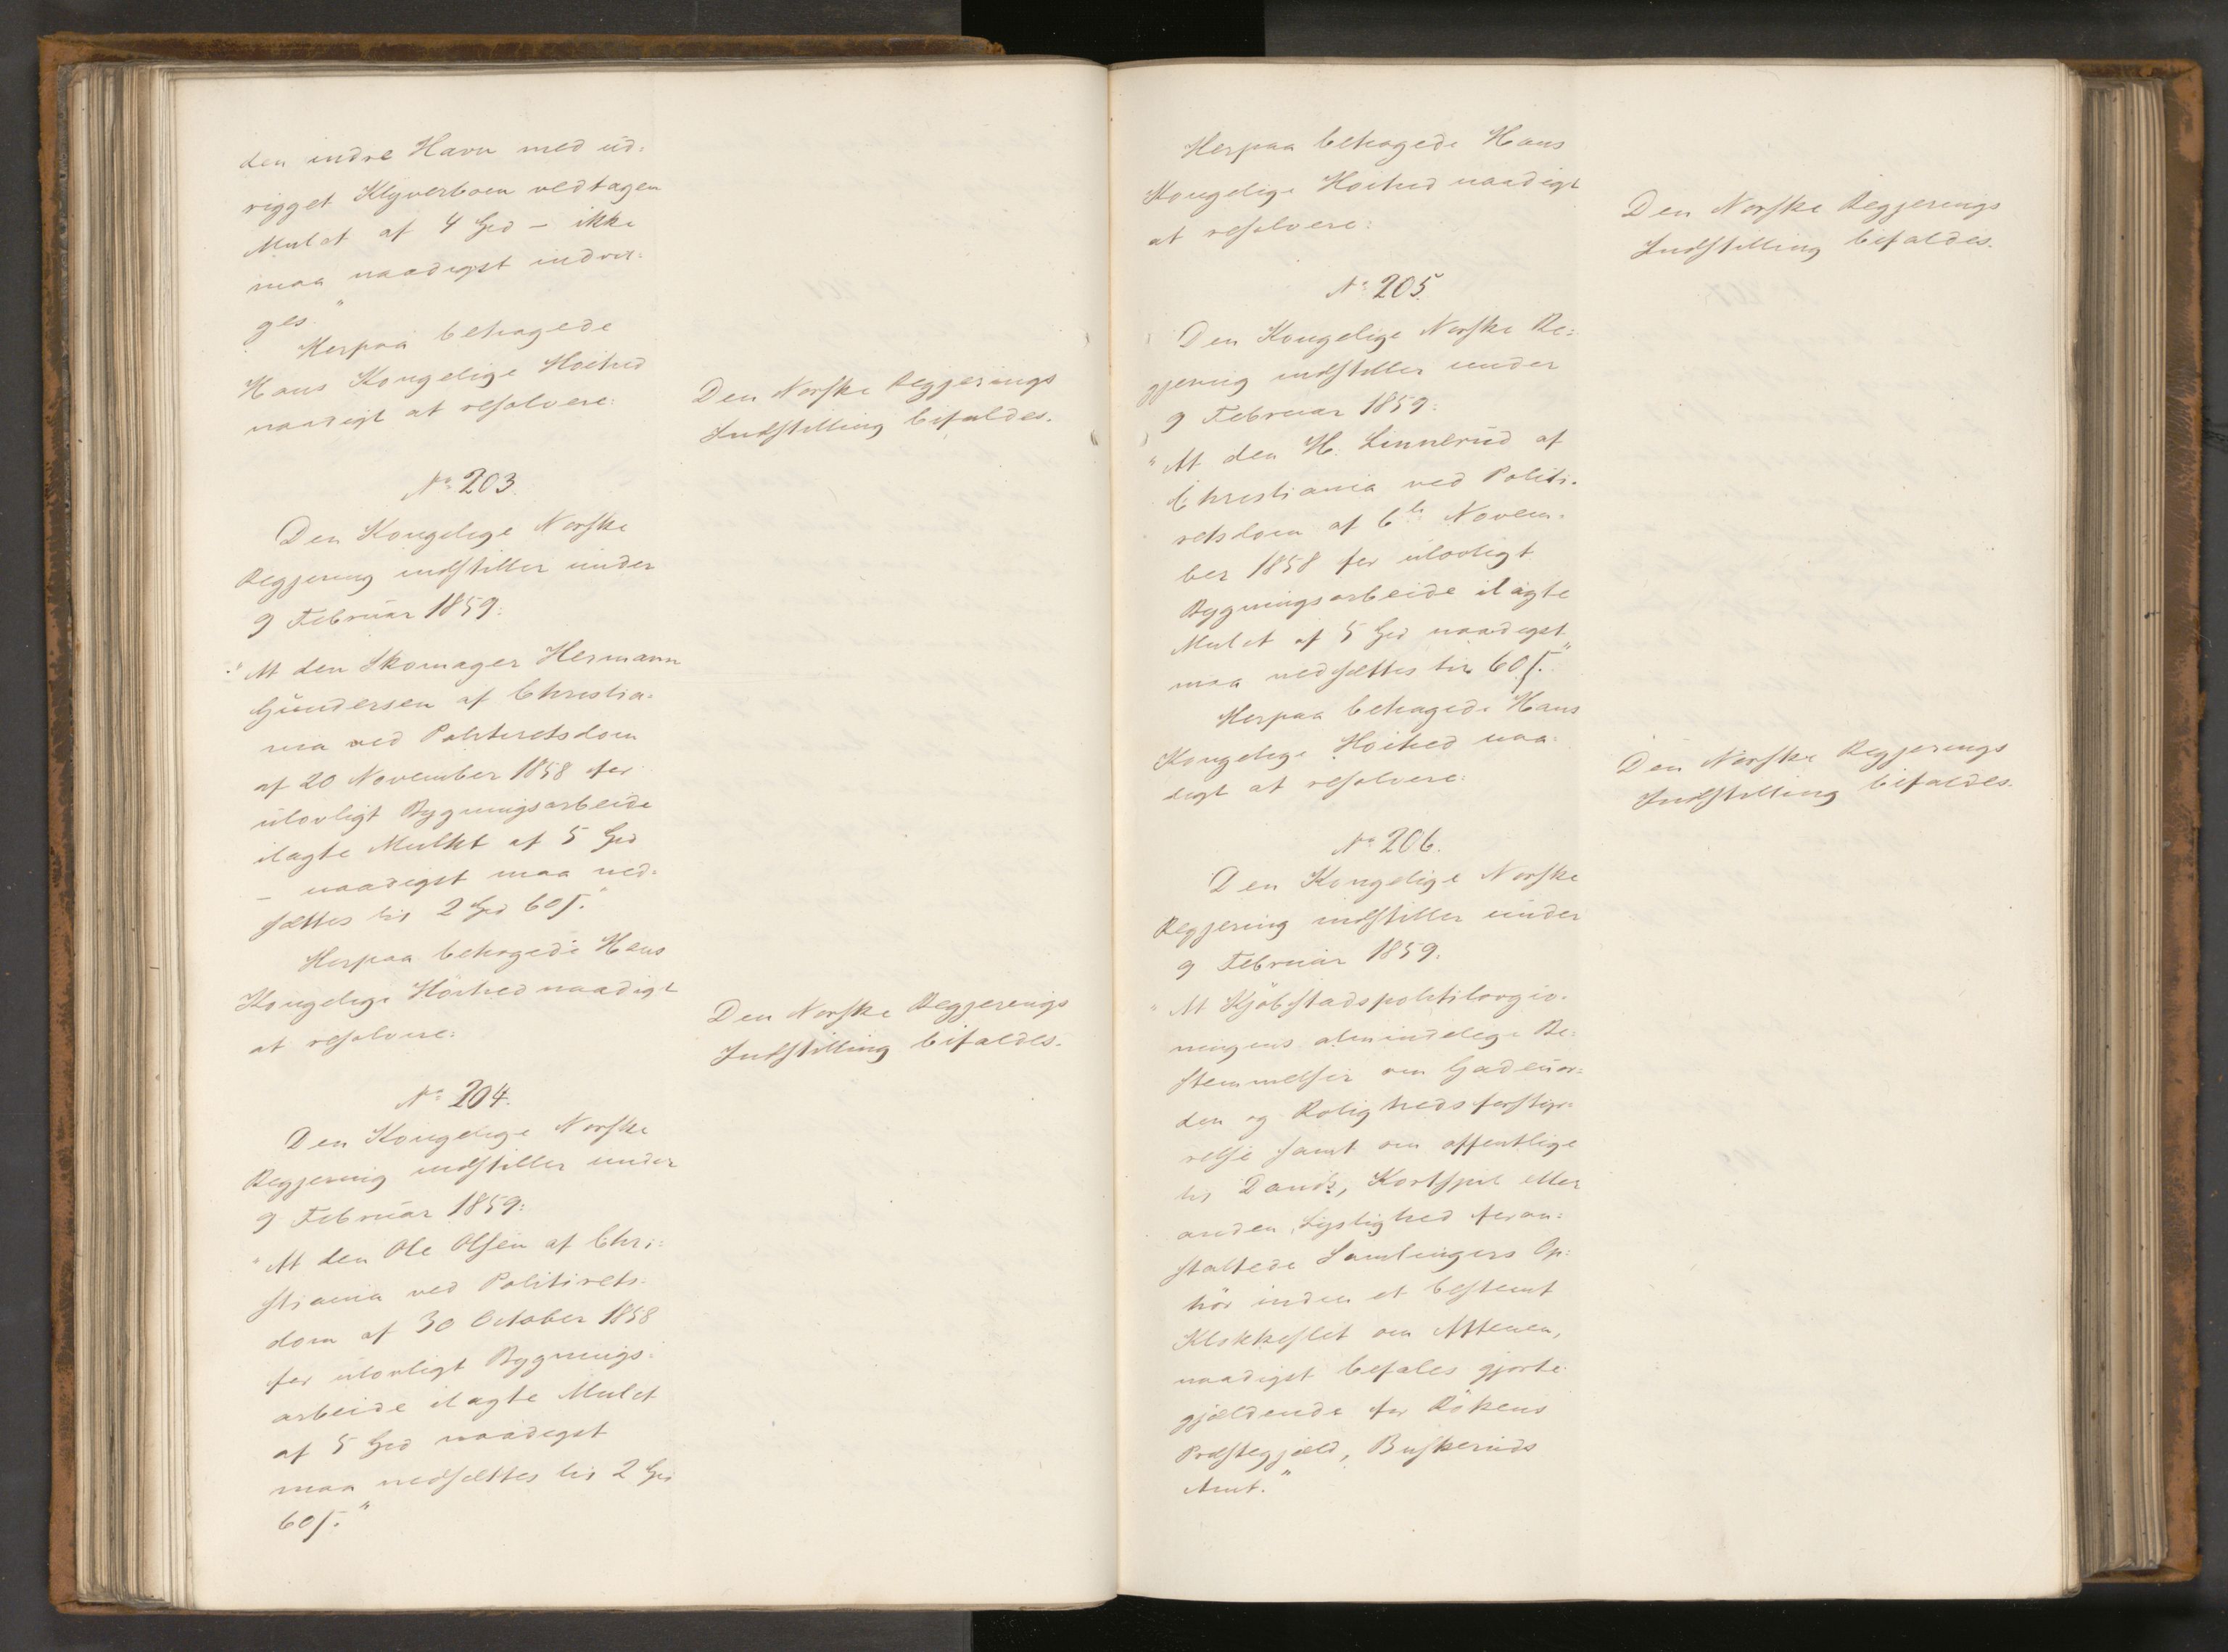 den indre Havn med ud-
rigget Klyverbom vedtagen
Mulct af 4 Spd - ikke
maa naadigst inddri-
ges."
Herpaa behagede
Hans Kongelige Høihed
naadigt at resolvere:
Den Norske Regjerings
Indstilling bifaldes.
No 203.
Den Kongelige Norske
Regjering indstiller under
9 Februar 1859:
"At den Skomager Hermann
Gundersen af Christia-
nia ved Politiretsdom
af 20 November 1858 for
ulovligt Bygningsarbeide
ilagte Mulkt af 5 Spd
- naadigst maa ned-
sættes til 2 Spd 60 s."
Herpaa behagede Hans
Kongelige Høihed naadigt
at resolvere:
Den Norske Regjerings
Indstilling bifaldes.
No 204.
Den Kongelige Norske
Regjering indstiller under
9 Februar 1859:
"At den Ole Olsen af Chri-
stiania ved Politirets-
dom af 30 October 1858
for ulovligt Bygnings-
arbeide ilagte Mulct
af 5 Spd naadigst
maa nedsættes til 2 Spd
60 s."
Herpaa behagede Hans
Kongelige Høihed naadigt
at resolvere:
Den Norske Regjerings
Indstilling bifaldes.
No 205.
Den Kongelige Norske Re-
gjering indstiller under
9 Februar 1859:
"At den H. Linnerud af
Christiania ved Politi-
retsdom af 6te Novem-
ber 1858 for ulovligt
Bygningsarbeide ilagte
Mulct af 5 Spd naadigst
maa nedsættes til 60 s."
Herpaa behagede Hans
Kongelige Høihed naa-
digt at resolvere:
Den Norske Regjerings
Indstilling bifaldes.
No 206.
Den Kongelige Norske
Regjering indstiller under
9 Februar 1859.
"At Kjöbstadspolitilovgiv-
ningens almindelige Be-
stemmelser om Gadeuor-
den og Rolighedsforstyr-
relse samt om offentlige
til Dands, Kortspil eller
anden Lystighed foran-
staltede Samlingers Op-
hör inden et bestemt
Klokkeslet om Aftenen,
naadigst befales gjorte
gjældende for Rökens
Præstegjæld, Buskeruds
Amt."